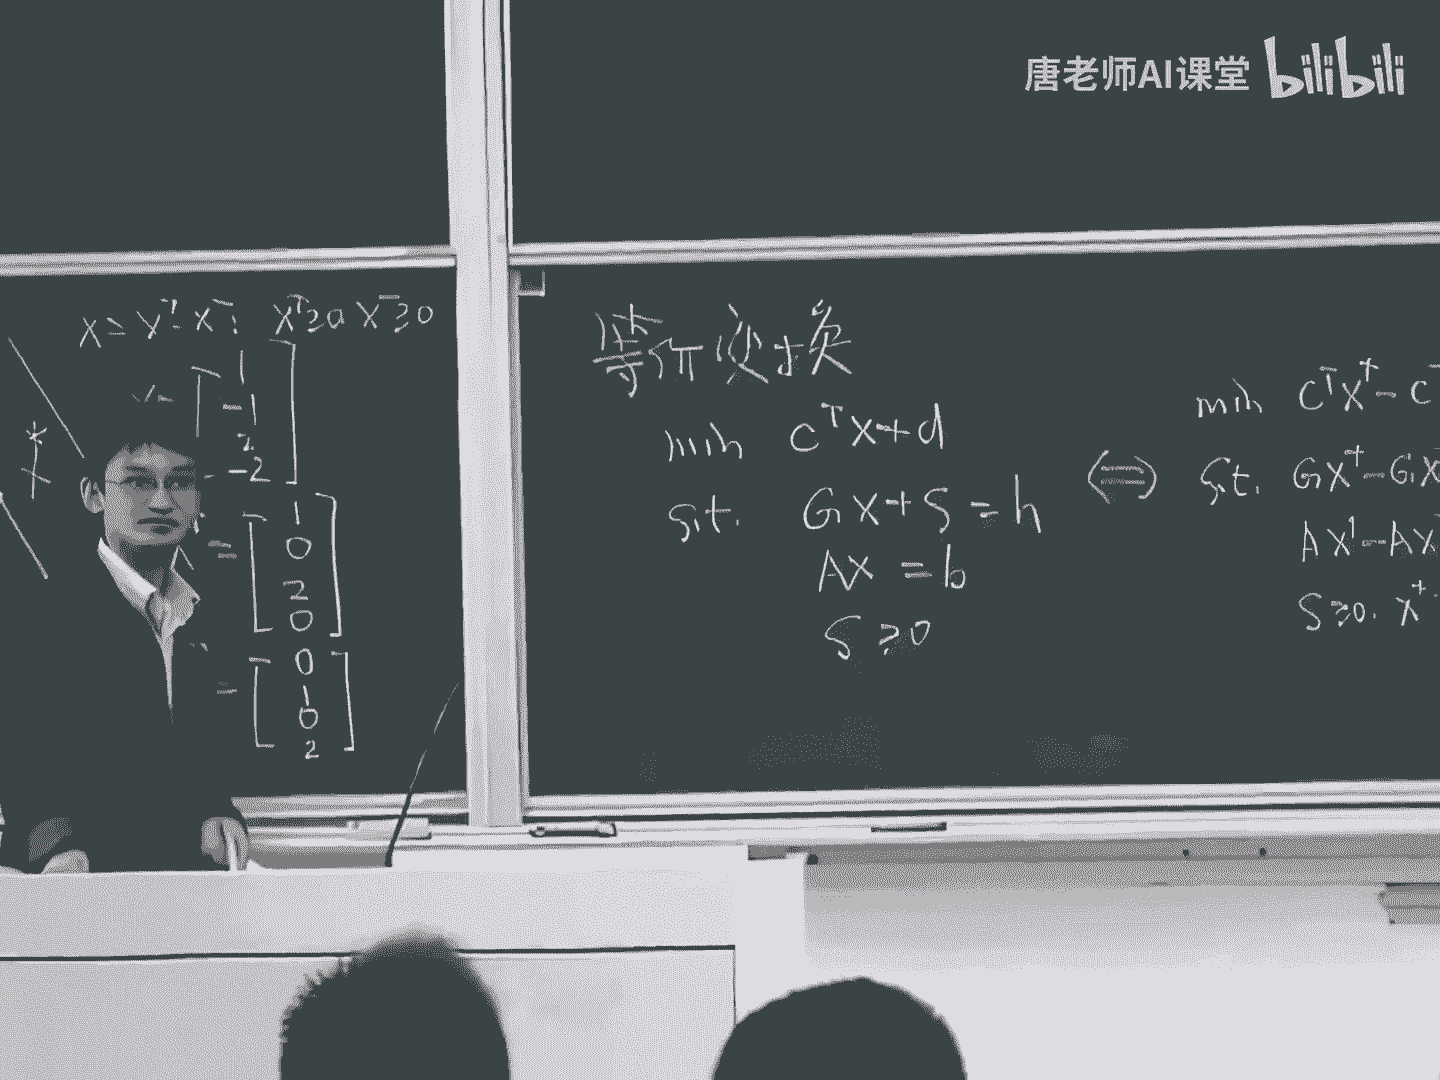 唐老师AI课堂 bilibili
X = X⁺-X⁻; X⁺≥0 X⁻≥0
1
-1
2
-2
= [1
0
2
0]
= [0
1
0
2]
等价变换
min CᵀX+d
s.t. GX+S=h
AX=b
S≥0
⟺
min CᵀX⁺-C
s.t. GX⁺-GX
AX⁺-AX⁻
S≥0. X⁺